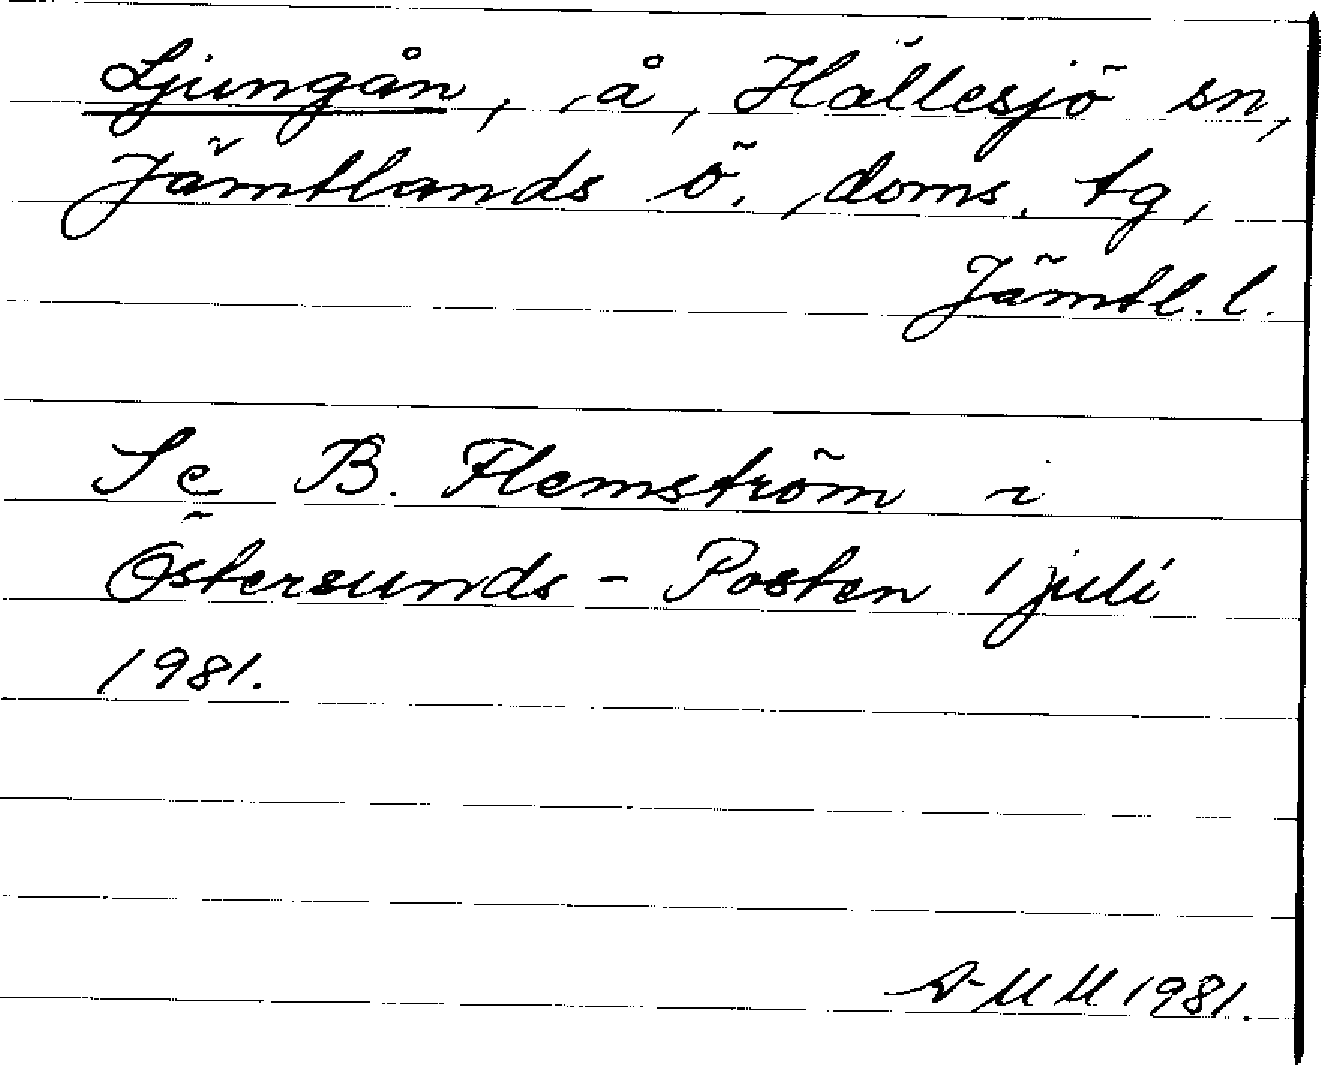 Ljungån, å, Hällesjö sn,
Jämtlands ö. doms. tg,
Jämtl. l.
Se B. Flemström i
Östersunds-Posten 1 juli
1981.
1981.